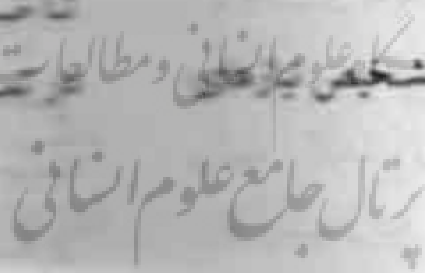 علوم انسانی و مطالعات
پرتال جامع علوم انسانی